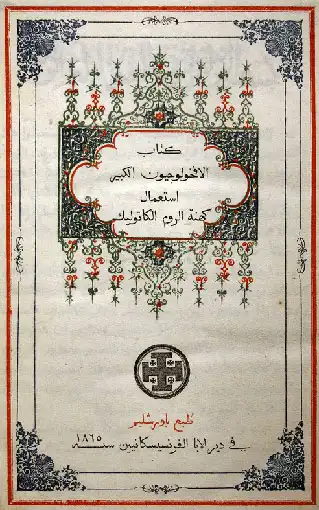 كتاب
الافخولوجيون الكبير
استعمال
كهنة الروم الكاتوليك
طبع باورشليم
في دير لابا الفرنسيسكانيين سنة ١٨٦٥